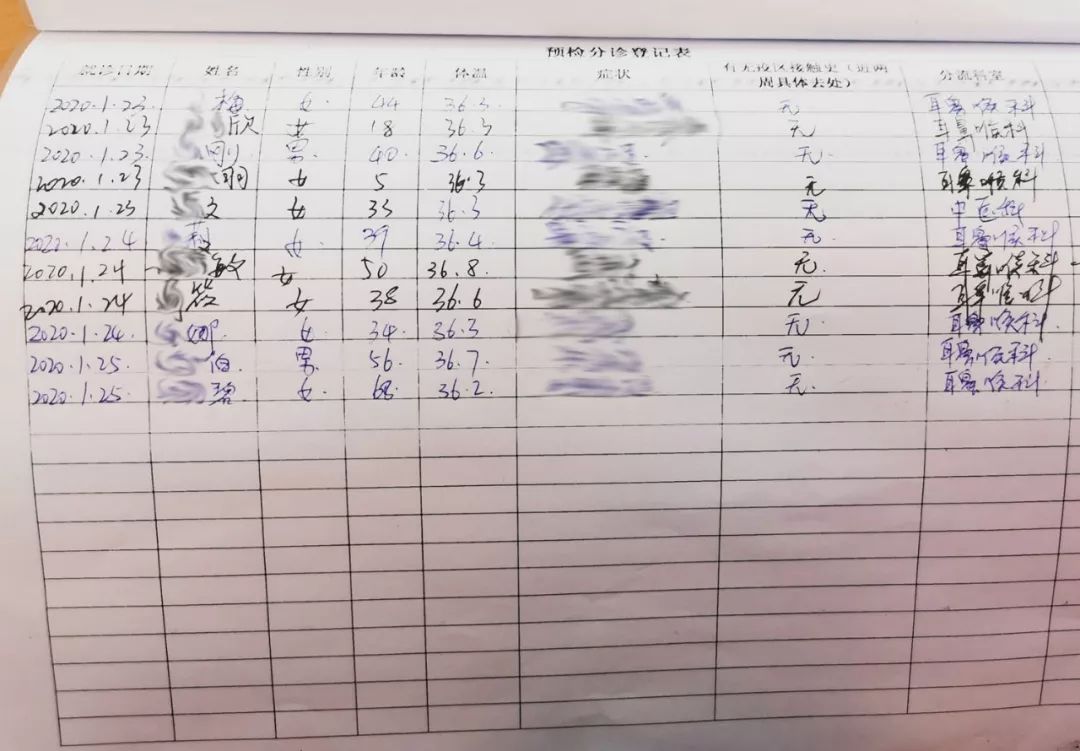 预检分诊登记表
就诊日期 姓名 性别 年龄 体温 症状 有无疫区接触史（近两周具体去处） 分流科室
2020.1.23 梅 女 44 36.3 无 耳鼻喉科
2020.1.23 欣 女 18 36.3 无 耳鼻喉科
2020.1.23 刚 男 40 36.6 无 耳鼻喉科
2020.1.23 女 5 36.3 无 耳鼻喉科
2020.1.23 文 女 35 36.3 无 中医科
1.24 莉 女 39 36.4 无 耳鼻喉科
2020.1.24 敏 女 50 36.8 无 耳鼻喉科
2020.1.24 女 38 36.6 无 耳鼻喉科
2020.1.24 娜 女 34 36.3 无 耳鼻喉科
2020.1.25 伯 男 56 36.7 无 耳鼻喉科
2020.1.25 碧 女 68 36.2 无 耳鼻喉科